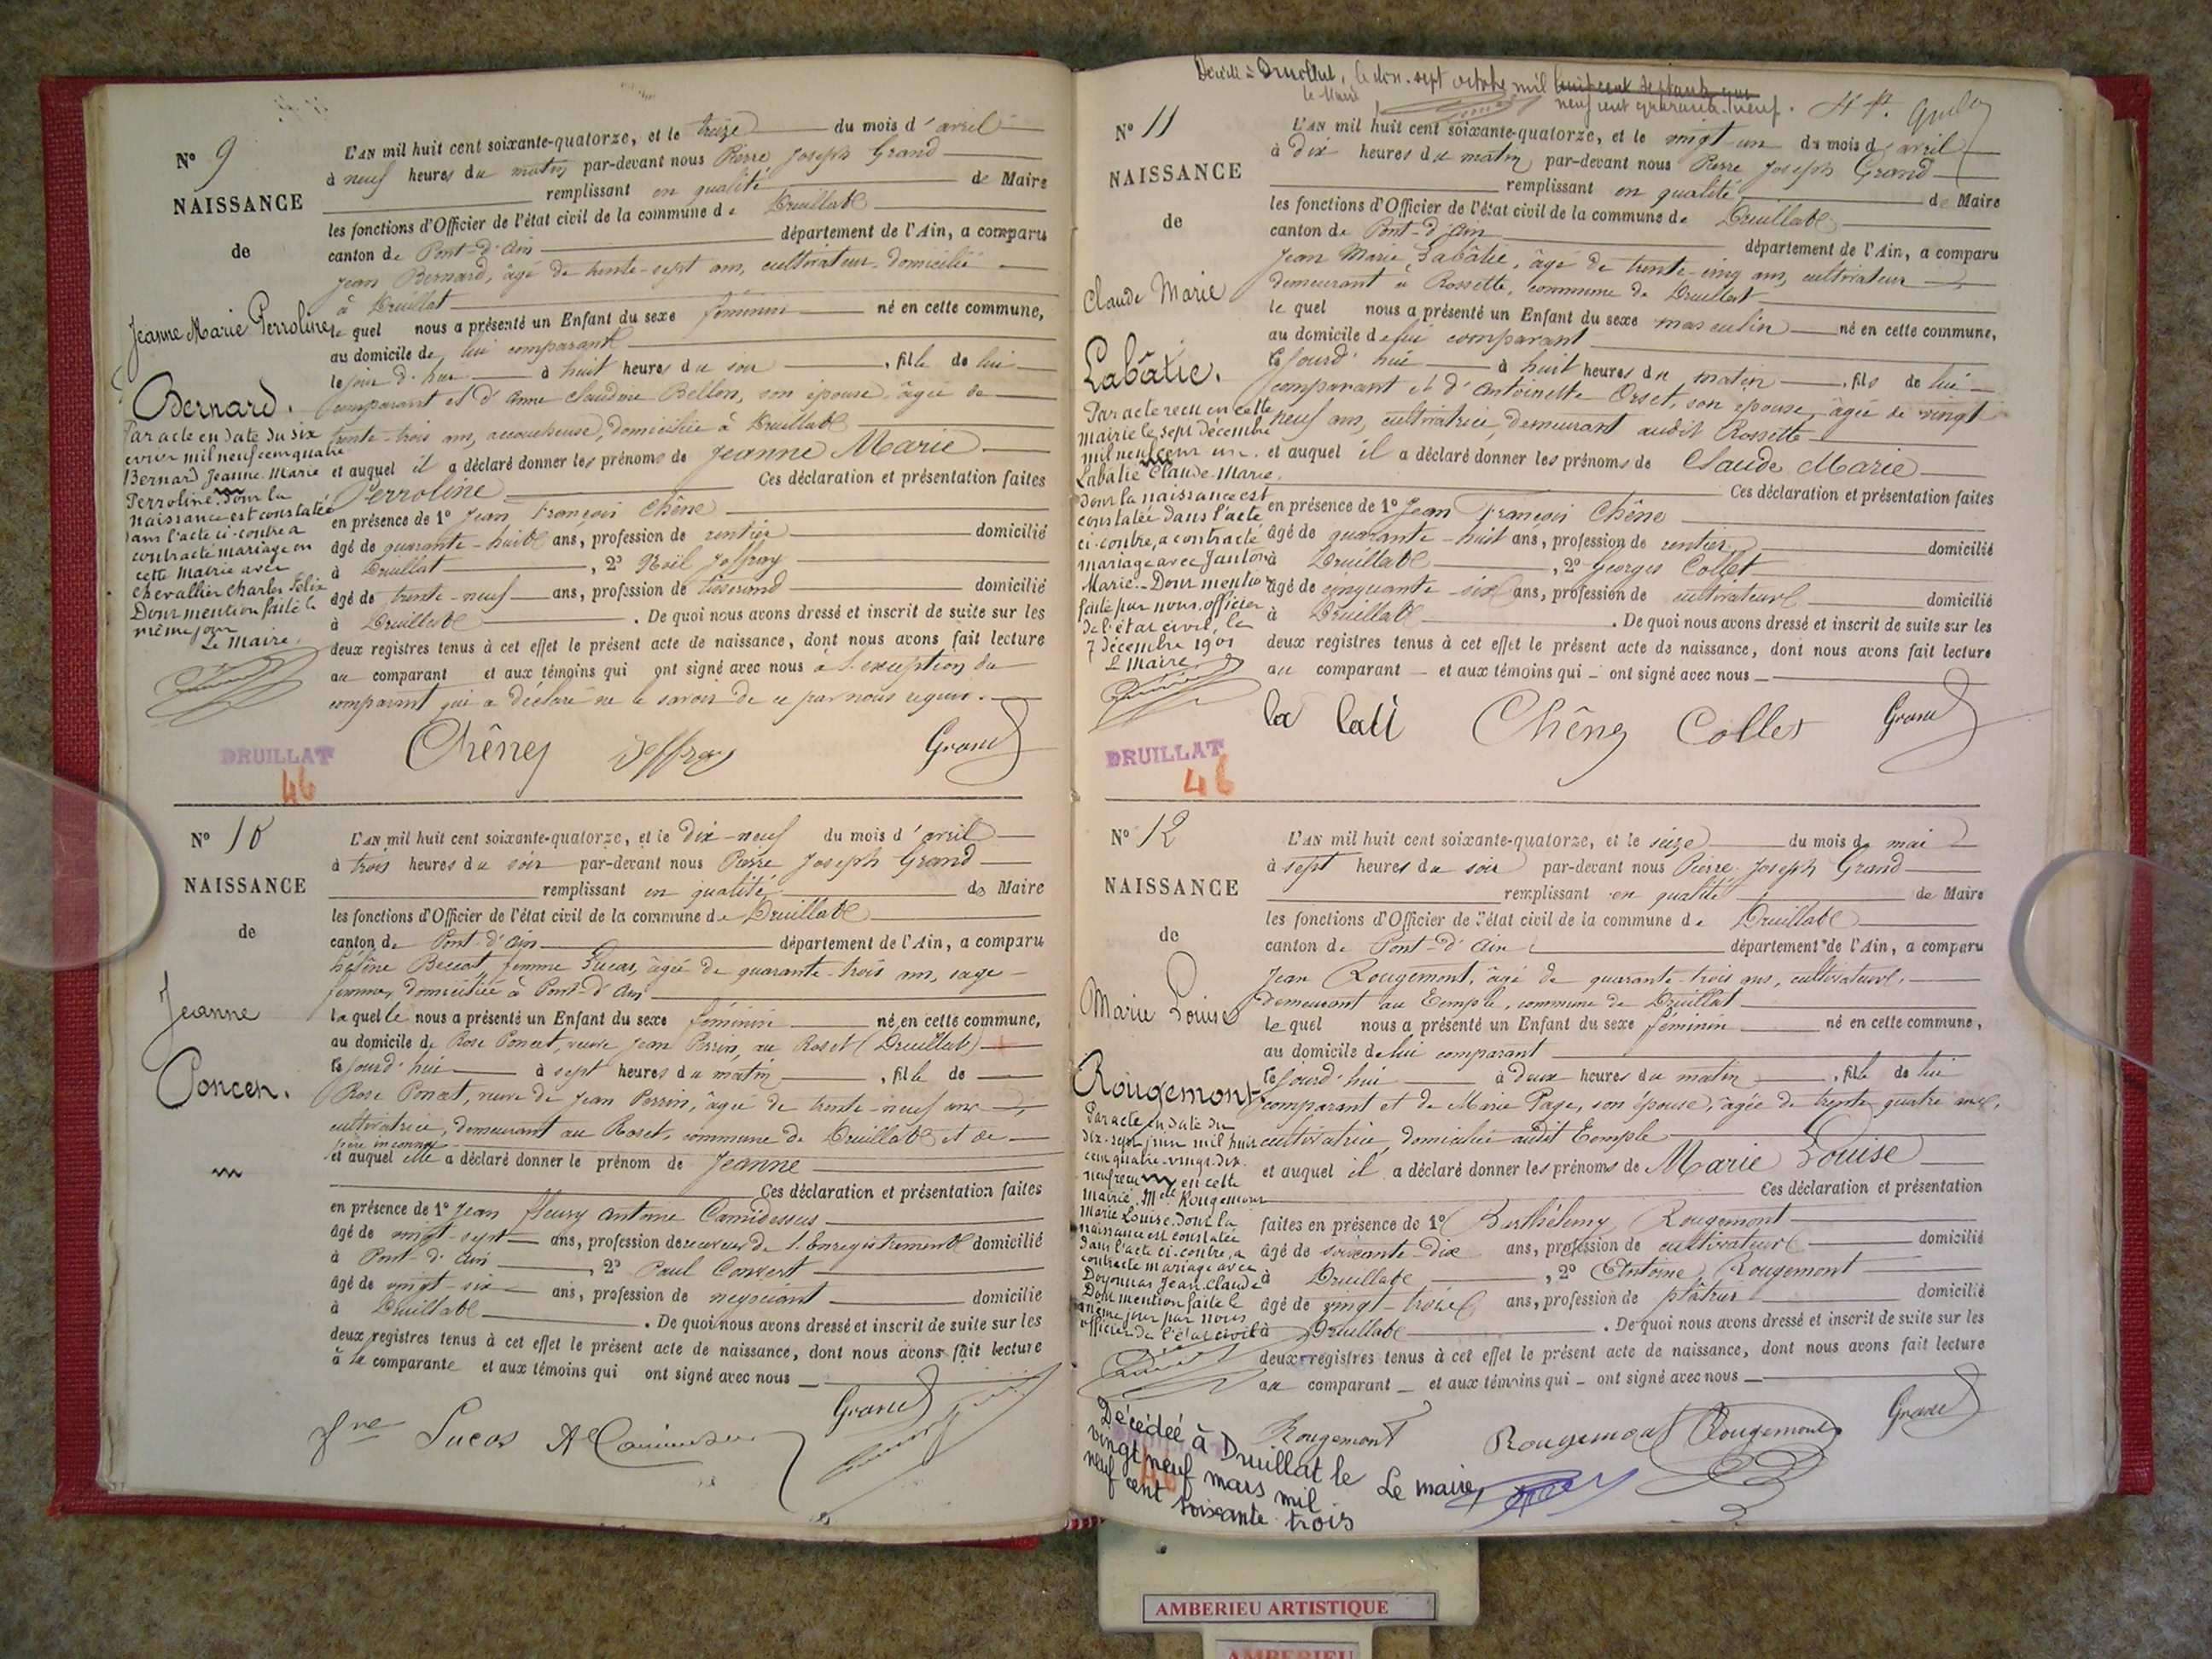 N° 9
NAISSANCE
de
Jeanne Marie Perroline
Bernard.
Par acte en date du six
mil neuf cent quatre
Bernard Jeanne Marie
Perroline dont la
naissance est constatée
dans l'acte ci-contre a
contracté mariage en
cette Mairie avec
Chevallier Charles Félix
Dont mention faite le
même jour
Le Maire,
L'AN mil huit cent soixante-quatorze, et le treize du mois d'avril
à neuf heures du matin par-devant nous Pierre Joseph Grand
remplissant en qualité de Maire
les fonctions d'Officier de l'état civil de la commune de Druillat
canton de Pont-d'Ain département de l'Ain, a comparu
Jean Bernard, âgé de trente-sept ans, cultivateur, domicilié
à Druillat
le quel nous a présenté un Enfant du sexe féminin né en cette commune,
au domicile de lui comparant
le jour d'hier à huit heures du soir, fille de lui
comparant et d'Anne Claudine Bellon, son épouse, âgée de
trente-trois ans, accoucheuse, domiciliée à Druillat
et auquel il a déclaré donner les prénoms de Jeanne Marie
Perroline Ces déclaration et présentation faites
en présence de 1° Jean François Chêne
âgé de quarante-huit ans, profession de rentier domicilié
à Druillat, 2° Noël Joffray
âgé de trente-neuf ans, profession de tisserand domicilié
à Druillat. De quoi nous avons dressé et inscrit de suite sur les
deux registres tenus à cet effet le présent acte de naissance, dont nous avons fait lecture
au comparant et aux témoins qui ont signé avec nous à l'exception du
comparant qui a déclaré ne le savoir de ce par nous requis.
Chêne Joffray Grand
DRUILLAT
46
N° 10
NAISSANCE
de
Jeanne
Poncet.
L'AN mil huit cent soixante-quatorze, et le dix-neuf du mois d'avril
à trois heures du soir par-devant nous Pierre Joseph Grand
remplissant en qualité de Maire
les fonctions d'Officier de l'état civil de la commune de Druillat
canton de Pont-d'Ain département de l'Ain, a comparu
Hélène femme Lucas, âgée de quarante-trois ans, sage-
femme, domiciliée à Pont-d'Ain
laquelle nous a présenté un Enfant du sexe féminin né en cette commune,
au domicile de Rose Poncet, veuve Jean Perrin, au Roset (Druillat)
le jourd'hui à sept heures du matin, fille de
Rose Poncet, veuve de Jean Perrin, âgée de trente-neuf ans
cultivatrice, demeurant au Roset, commune de Druillat et de
père inconnu
et auquel elle a déclaré donner le prénom de Jeanne
Ces déclaration et présentation faites
en présence de 1° Jean Fleury Antoine Camidessus
âgé de vingt-sept ans, profession de receveur de l'Enregistrement domicilié
à Pont-d'Ain, 2° Paul Convert
âgé de vingt-six ans, profession de négociant domicilié
à Druillat. De quoi nous avons dressé et inscrit de suite sur les
deux registres tenus à cet effet le présent acte de naissance, dont nous avons fait lecture
à la comparante et aux témoins qui ont signé avec nous
Grand
fme Lucas
Décédé à Druillat, le dix-sept octobre mil
neuf cent quarante-neuf.
le Maire
N° 11
NAISSANCE
de
Claude Marie
Labâtie.
Par acte recu en cette
mairie le sept Décembre
mil neuf cent un
Labâtie Claude-Marie,
Dont la naissance est
constatée dans l'acte
ci-contre, a contracté
mariage avec
Marie. Dont mention
faite par nous, officier
de l'état civil, le
7 Décembre 1901
Le Maire,
L'AN mil huit cent soixante-quatorze, et le vingt-un du mois d'avril
à dix heures du matin par-devant nous Pierre Joseph Grand
remplissant en qualité de Maire
les fonctions d'Officier de l'état civil de la commune de Druillat
canton de Pont-d'Ain département de l'Ain, a comparu
Jean Marie Labâtie, âgé de trente-cinq ans, cultivateur
demeurant à Rossette, commune de Druillat
le quel nous a présenté un Enfant du sexe masculin né en cette commune,
au domicile de lui comparant
le jourd'hui à huit heures du matin, fils de lui
comparant et d'Antoinette Orset, son épouse, âgée de vingt
neuf ans, cultivatrice, demeurant audit Rossette
et auquel il a déclaré donner les prénoms de Claude Marie
Ces déclaration et présentation faites
en présence de 1° Jean François Chêne
âgé de quarante-huit ans, profession de rentier domicilié
à Druillat, 2° Georges Collet
âgé de cinquante-six ans, profession de cultivateur domicilié
à Druillat. De quoi nous avons dressé et inscrit de suite sur les
deux registres tenus à cet effet le présent acte de naissance, dont nous avons fait lecture
au comparant et aux témoins qui ont signé avec nous
la bati Chêne Collet Grand
DRUILLAT
46
N° 12
NAISSANCE
de
Marie Louise
Rougemont
Par acte en date du
dix-sept juin mil huit
cent quatre-vingt-dix
neuf reçu en cette
Mairie, Mlle Rougemont
Marie Louise dont la
naissance est constatée
dans l'acte ci-contre, a
contracté mariage avec
Jean Claude
Dont mention faite le
même jour par nous
officier de l'état civil
L'AN mil huit cent soixante-quatorze, et le seize du mois de mai
à sept heures du soir par-devant nous Pierre Joseph Grand
remplissant en qualité de Maire
les fonctions d'Officier de l'état civil de la commune de Druillat
canton de Pont-d'Ain département de l'Ain, a comparu
Jean Rougemont, âgé de quarante-trois ans, cultivateur,
demeurant au Temple, commune de Druillat
le quel nous a présenté un Enfant du sexe féminin né en cette commune,
au domicile de lui comparant
le jourd'hui à deux heures du matin, fille de lui
comparant et de Marie Page, son épouse, âgée de trente quatre ans,
cultivatrice, domiciliée audit Temple
et auquel il a déclaré donner les prénoms de Marie Louise
Ces déclaration et présentation
faites en présence de 1° Barthélemy Rougemont
âgé de soixante-dix ans, profession de cultivateur domicilié
à Druillat, 2° Antoine Rougemont
âgé de vingt-trois ans, profession de plâtrier domicilié
à Druillat. De quoi nous avons dressé et inscrit de suite sur les
deux registres tenus à cet effet le présent acte de naissance, dont nous avons fait lecture
au comparant et aux témoins qui ont signé avec nous
Rougemont Rougemont Rougemont Grand
Décédée à Druillat le
vingt neuf mars mil
neuf cent soixante trois
Le maire,
46
AMBERIEU ARTISTIQUE
AMBERIEU